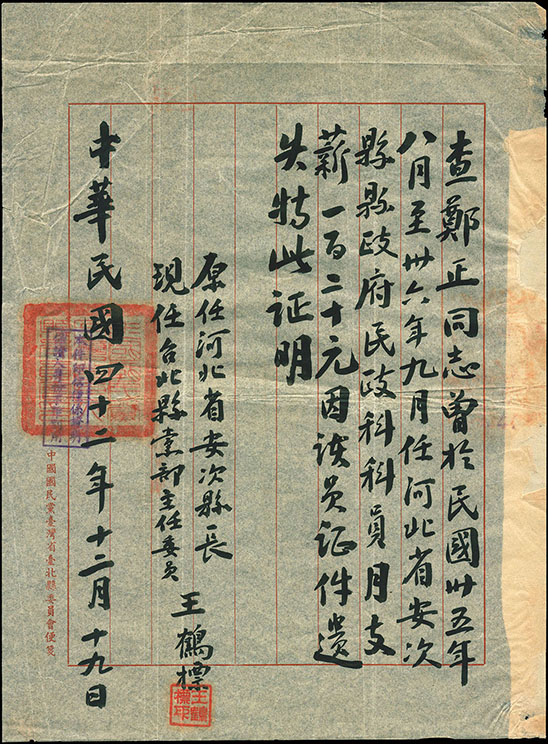 查鄭正同志曾於民國卅五年
八月至卅六年九月任河北省安次
縣縣政府民政科科員月支
薪一百二十元因該員证件遺
失特此证明
原任河北省安次縣長
現任台北縣党部主任委員
王鶴標
中華民國四十二年十二月十九日
中國國民黨臺灣省臺北縣委員會便箋